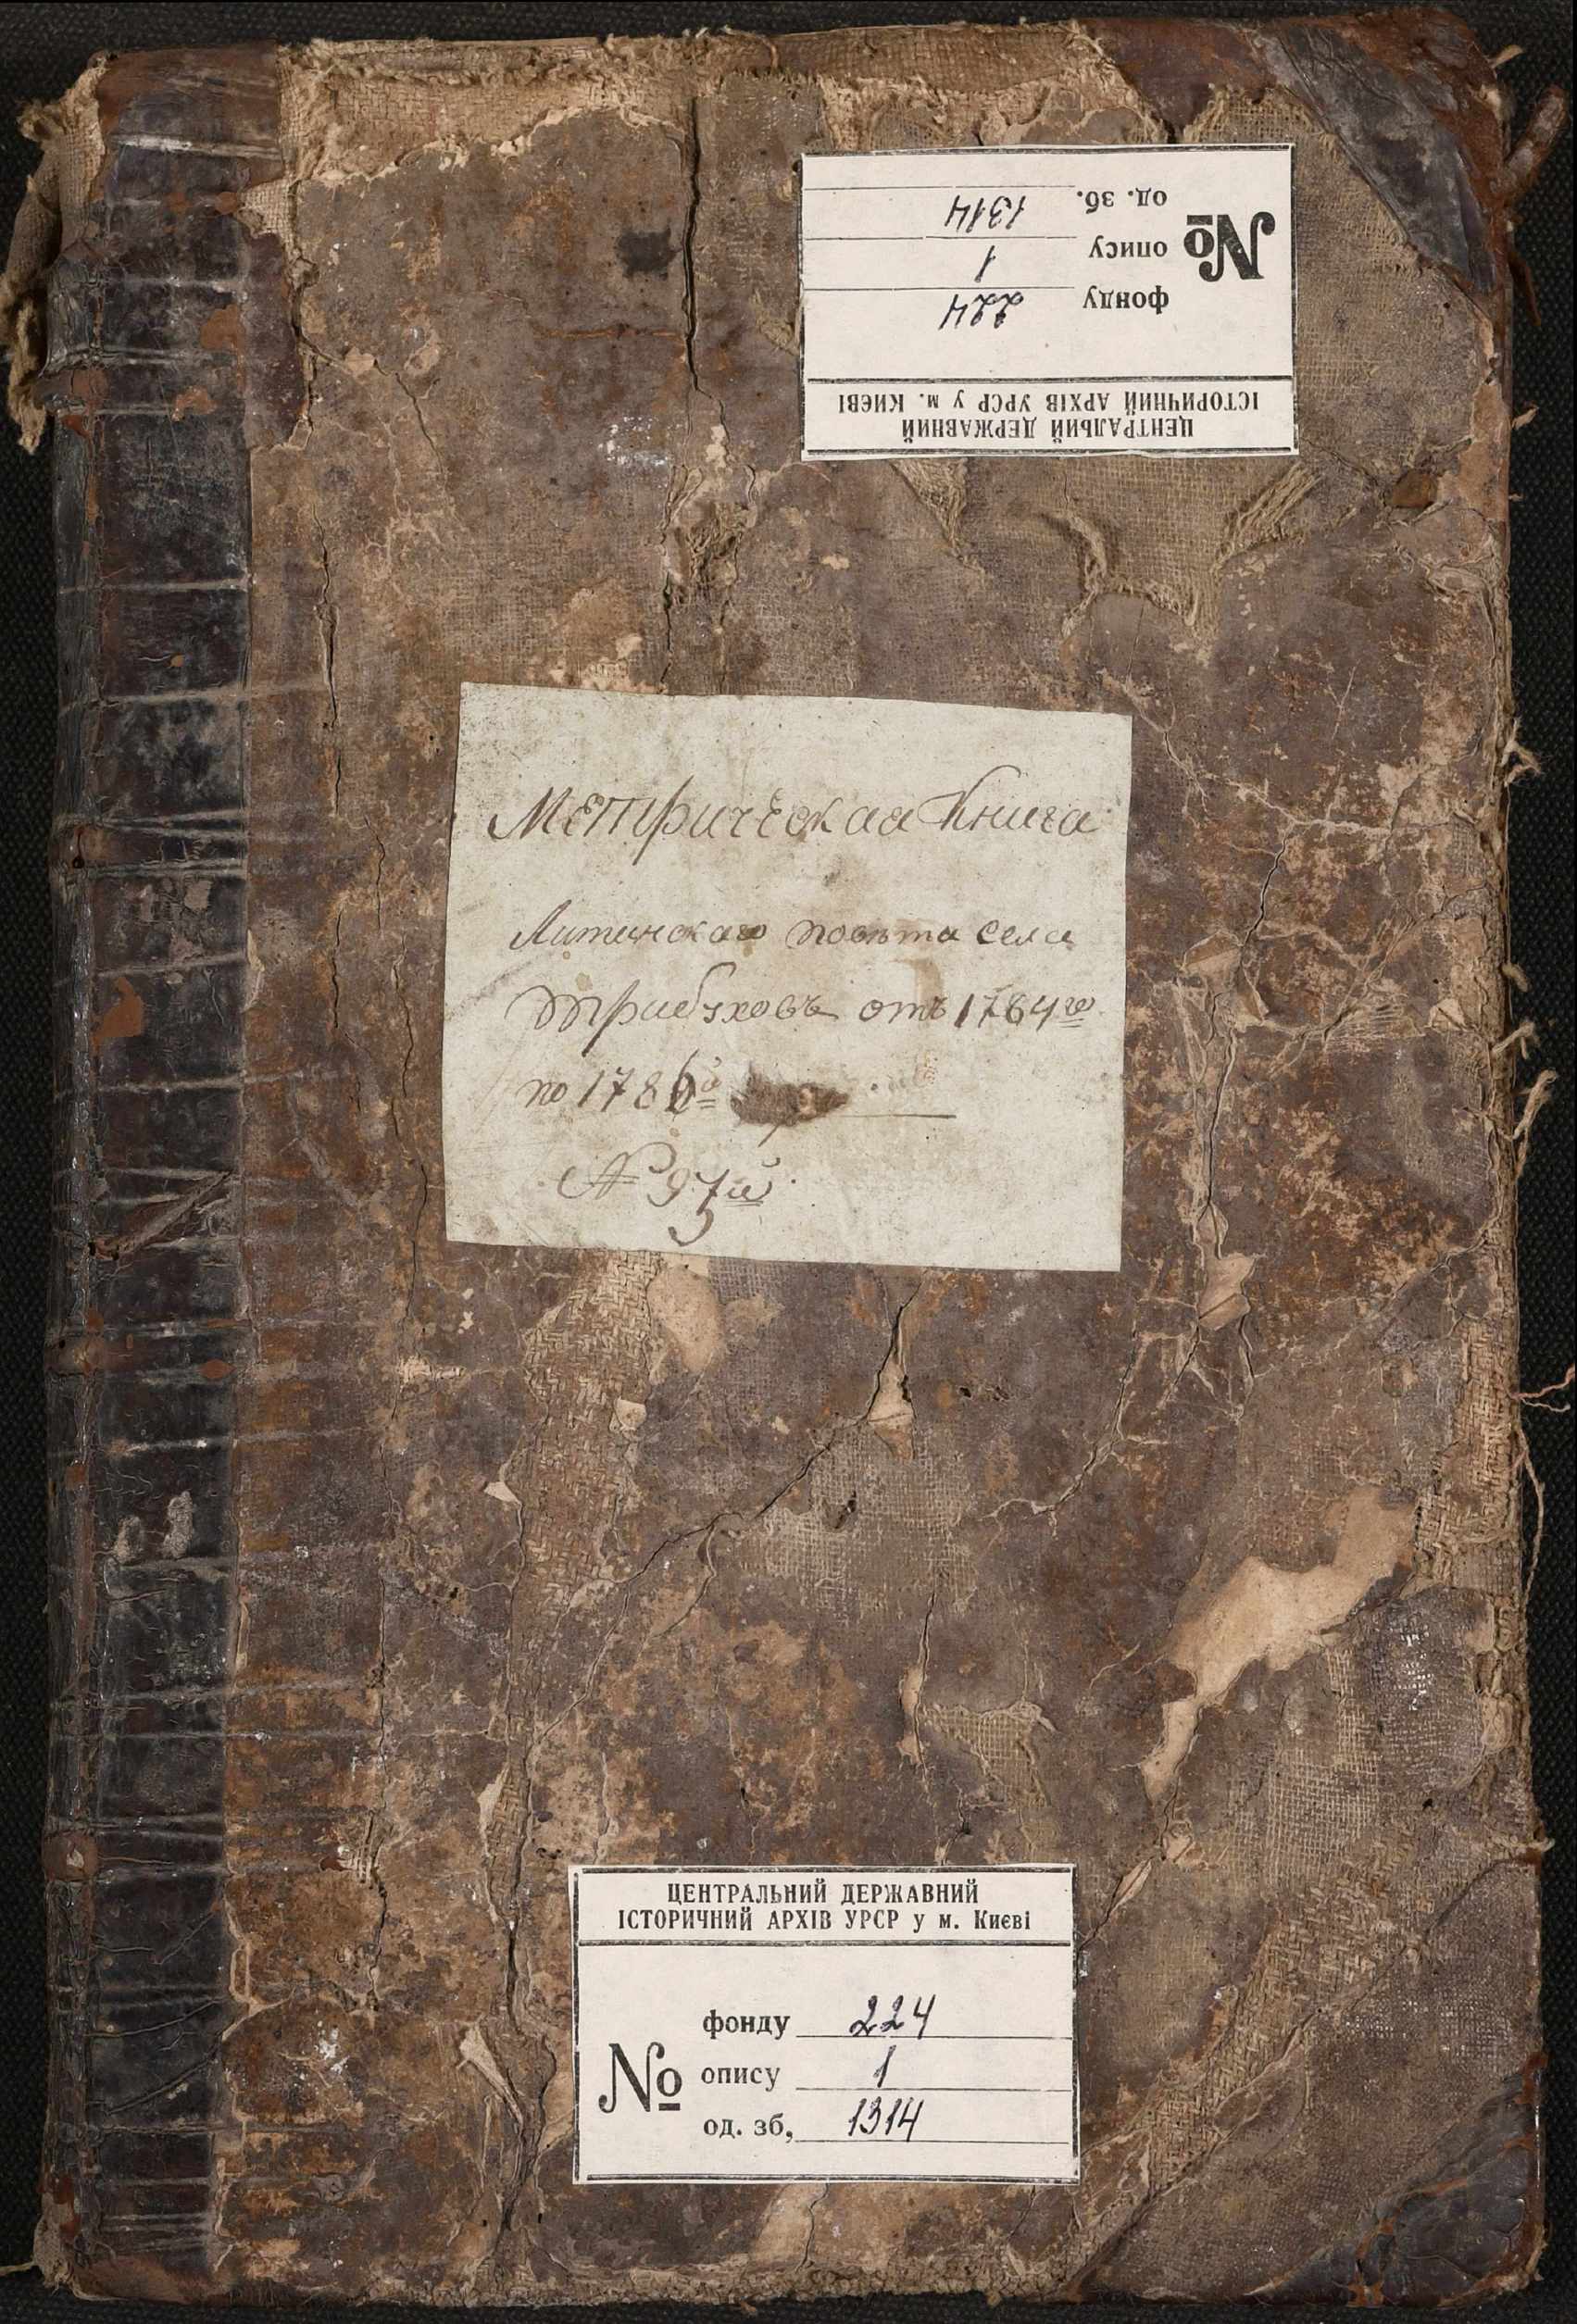 №
фонду 224
опису 1
од. зб. 1314
ЦЕНТРАЛЬНИЙ ДЕРЖАВНИЙ
ІСТОРИЧНИЙ АРХІВ УРСР у м. КИЄВІ
Метрическая Книга
Литинскаго повѣта села
Трибуховъ отъ 1764го
по 1786й
№ 97й
ЦЕНТРАЛЬНИЙ ДЕРЖАВНИЙ
ІСТОРИЧНИЙ АРХІВ УРСР у м. Києві
№
фонду 224
опису 1
од. зб, 1314